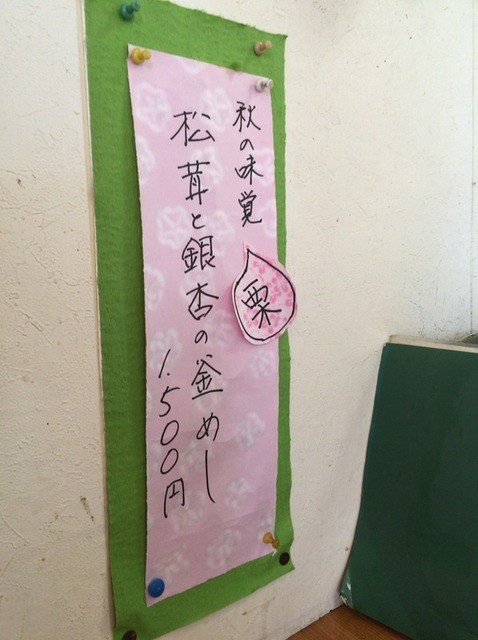 秋の味覚
栗
松茸と銀杏の釜めし
1.500円